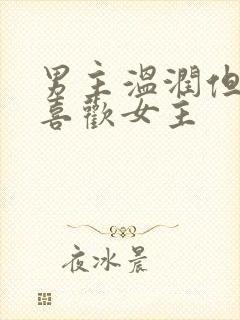 男主溫潤但
喜歡女主
夜冰晨